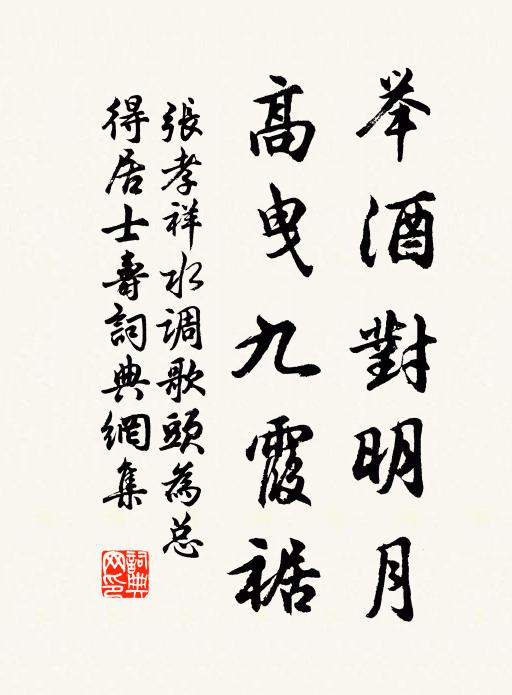 举酒對明月
高曳九霞裾
張孝祥水调歌頭為总
得居士壽詞典網集
詞典
网印